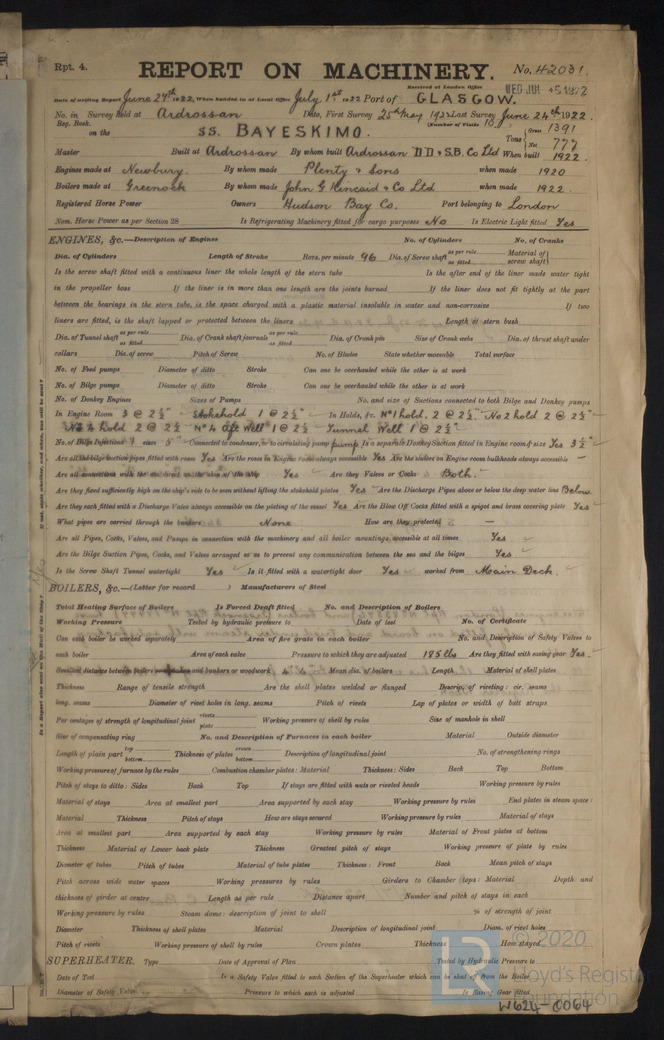 Rpt. 4. REPORT ON MACHINERY. No. 42031.
Received at London Office WED JUL -5 1922
Date of writing Report June 27th 1922. When handed in at Local Office July 1st 1922 Port of GLASGOW.
No. in Survey held at Ardrossan Date, First Survey 25th May 1922 Last Survey June 24th 1922.
Reg. Book. (Number of Visits
on the SS. BAYESKIMO. Tons Gross 1391 Net 777
Master Built at Ardrossan By whom built Ardrossan D.D & S.B. Co Ltd When built 1922.
Engines made at Newbury. By whom made Plenty & Sons when made 1920
Boilers made at Greenock By whom made John G Kincaid & Co Ltd when made 1922.
Registered Horse Power Owners Hudson Bay Co. Port belonging to London
Nom. Horse Power as per Section 28 Is Refrigerating Machinery fitted for cargo purposes No Is Electric Light fitted Yes
ENGINES, &c.—Description of Engines No. of Cylinders No. of Cranks
Dia. of Cylinders Length of Stroke Revs. per minute 96 Dia. of Screw shaft as per rule as fitted Material of screw shaft
Is the screw shaft fitted with a continuous liner the whole length of the stern tube Is the after end of the liner made water tight
in the propeller boss If the liner is in more than one length are the joints burned If the liner does not fit tightly at the part
between the bearings in the stern tube, is the space charged with a plastic material insoluble in water and non-corrosive If two
liners are fitted, is the shaft lapped or protected between the liners Length of stern bush
Dia. of Tunnel shaft as per rule as fitted Dia. of Crank shaft journals as per rule as fitted Dia. of Crank pin Size of Crank webs Dia. of thrust shaft under
collars Dia. of screw Pitch of Screw No. of Blades State whether moveable Total surface
No. of Feed pumps Diameter of ditto Stroke Can one be overhauled while the other is at work
No. of Bilge pumps Diameter of ditto Stroke Can one be overhauled while the other is at work
No. of Donkey Engines Sizes of Pumps No. and size of Suctions connected to both Bilge and Donkey pumps
In Engine Room 3 @ 2½" Stokehold 1 @ 2½" In Holds, &c. No 1 hold. 2 @ 2½" No 2 hold 2 @ 2½"
hold 2 @ 2½" No 4 Aft Well 1 @ 2½" Tunnel Well 1 @ 2½"
No. of Bilge Injections 1 sizes 5" Connected to condenser, or to circulating pump pump Is a separate Donkey Suction fitted in Engine room & size Yes 3½"
Are all the bilge suction pipes fitted with roses Yes Are the roses in Engine room always accessible Yes Are the sluices on Engine room bulkheads always accessible —
Are all connections with the sea direct on the skin of the ship Yes Are they Valves or Cocks Both.
Are they fixed sufficiently high on the ship's side to be seen without lifting the stokehold plates Yes Are the Discharge Pipes above or below the deep water line Below
Are they each fitted with a Discharge Valve always accessible on the plating of the vessel Yes Are the Blow Off Cocks fitted with a spigot and brass covering plate Yes
What pipes are carried through the bunkers None How are they protected —
Are all Pipes, Cocks, Valves, and Pumps in connection with the machinery and all boiler mountings accessible at all times Yes
Are the Bilge Suction Pipes, Cocks, and Valves arranged so as to prevent any communication between the sea and the bilges Yes
Is the Screw Shaft Tunnel watertight Yes Is it fitted with a watertight door Yes worked from Main Deck.
BOILERS, &c.—(Letter for record ) Manufacturers of Steel
Total Heating Surface of Boilers Is Forced Draft fitted No. and Description of Boilers
Working Pressure Tested by hydraulic pressure to Date of test No. of Certificate
Can each boiler be worked separately Area of fire grate in each boiler No. and Description of Safety Valves to
each boiler Area of each valve Pressure to which they are adjusted 185 lbs Are they fitted with easing gear Yes
Smallest distance between boilers and bunkers or woodwork Mean dia. of boilers Length Material of shell plates
Thickness Range of tensile strength Are the shell plates welded or flanged Descrip. of riveting: cir. seams
long. seams Diameter of rivet holes in long. seams Pitch of rivets Lap of plates or width of butt straps
Per centages of strength of longitudinal joint rivets plate Working pressure of shell by rules Size of manhole in shell
Size of compensating ring No. and Description of Furnaces in each boiler Material Outside diameter
Length of plain part top bottom Thickness of plates crown bottom Description of longitudinal joint No. of strengthening rings
Working pressure of furnace by the rules Combustion chamber plates: Material Thickness: Sides Back Top Bottom
Pitch of stays to ditto: Sides Back Top If stays are fitted with nuts or riveted heads Working pressure by rules
Material of stays Area at smallest part Area supported by each stay Working pressure by rules End plates in steam space:
Material Thickness Pitch of stays How are stays secured Working pressure by rules Material of stays
Area at smallest part Area supported by each stay Working pressure by rules Material of Front plates at bottom
Thickness Material of Lower back plate Thickness Greatest pitch of stays Working pressure of plate by rules
Diameter of tubes Pitch of tubes Material of tube plates Thickness: Front Back Mean pitch of stays
Pitch across wide water spaces Working pressures by rules Girders to Chamber tops: Material Depth and
thickness of girder at centre Length as per rule Distance apart Number and pitch of stays in each
Working pressure by rules Steam dome: description of joint to shell % of strength of joint
Diameter Thickness of shell plates Material Description of longitudinal joint Diam. of rivet holes
Pitch of rivets Working pressure of shell by rules Crown plates Thickness How stayed
SUPERHEATER. Type Date of Approval of Plan Tested by Hydraulic Pressure to
Date of Test Is a Safety Valve fitted to each Section of the Superheater which can be shut off from the Boiler
Diameter of Safety Valve Pressure to which each is adjusted Is Easing Gear fitted
© 2020
Lloyd's Register
Foundation
W624-0064